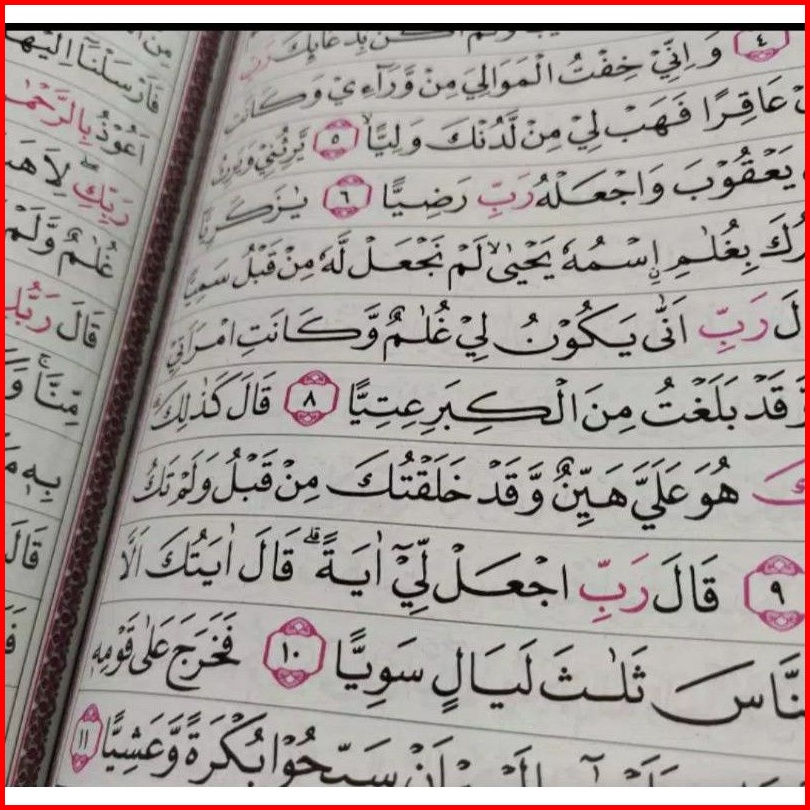 اَكُنْۢ بِدُعَاۤىِٕكَ رَبِّ
٤ وَاِنِّيْ خِفْتُ الْمَوَالِيَ مِنْ وَّرَاۤءِيْ وَكَانَتِ
عَاقِرًا فَهَبْ لِيْ مِنْ لَّدُنْكَ وَلِيًّاۙ ٥ يَّرِثُنِيْ وَيَرِثُ
يَعْقُوْبَ وَاجْعَلْهُ رَبِّ رَضِيًّا ٦ يٰزَكَرِيَّا
بِغُلٰمِ اِسْمُهٗ يَحْيٰىۙ لَمْ نَجْعَلْ لَّهٗ مِنْ قَبْلُ سَمِيًّا
رَبِّ اَنّٰى يَكُوْنُ لِيْ غُلٰمٌ وَّكَانَتِ امْرَاَتِيْ
وَّقَدْ بَلَغْتُ مِنَ الْكِبَرِ عِتِيًّا ٨ قَالَ كَذٰلِكَۚ
هُوَ عَلَيَّ هَيِّنٌ وَّقَدْ خَلَقْتُكَ مِنْ قَبْلُ وَلَمْ تَكُ
٩ قَالَ رَبِّ اجْعَلْ لِّيْٓ اٰيَةًۗ قَالَ اٰيَتُكَ اَلَّا
النَّاسَ ثَلٰثَ لَيَالٍ سَوِيًّا ١٠ فَخَرَجَ عَلٰى قَوْمِهٖ
اَنْ سَبِّحُوْا بُكْرَةً وَّعَشِيًّا ١١
فَاَرْسَلْنَآ اِلَيْهَا
اَعُوْذُ بِالرَّحْمٰنِ
رَبِّكِۖ لِاَهَبَ
غُلٰمٌ وَّلَمْ
قَالَ رَبُّكِ
مِّنَّاۚ
بِهٖ